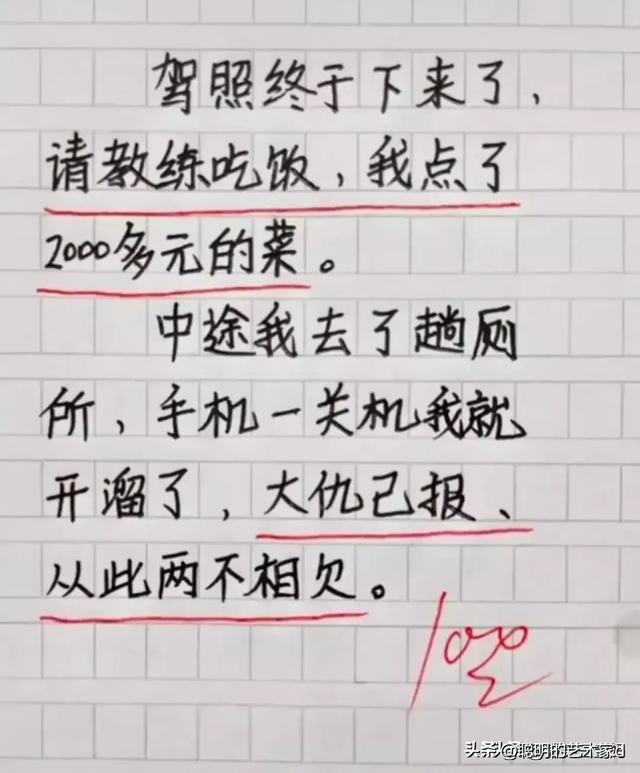 驾照终于下来了，
请教练吃饭，我点了
2000多元的菜。
中途我去了趟厕
所，手机一关机我就
开溜了，大仇已报、
从此两不相欠。
100
头条@聪明的艺术家记